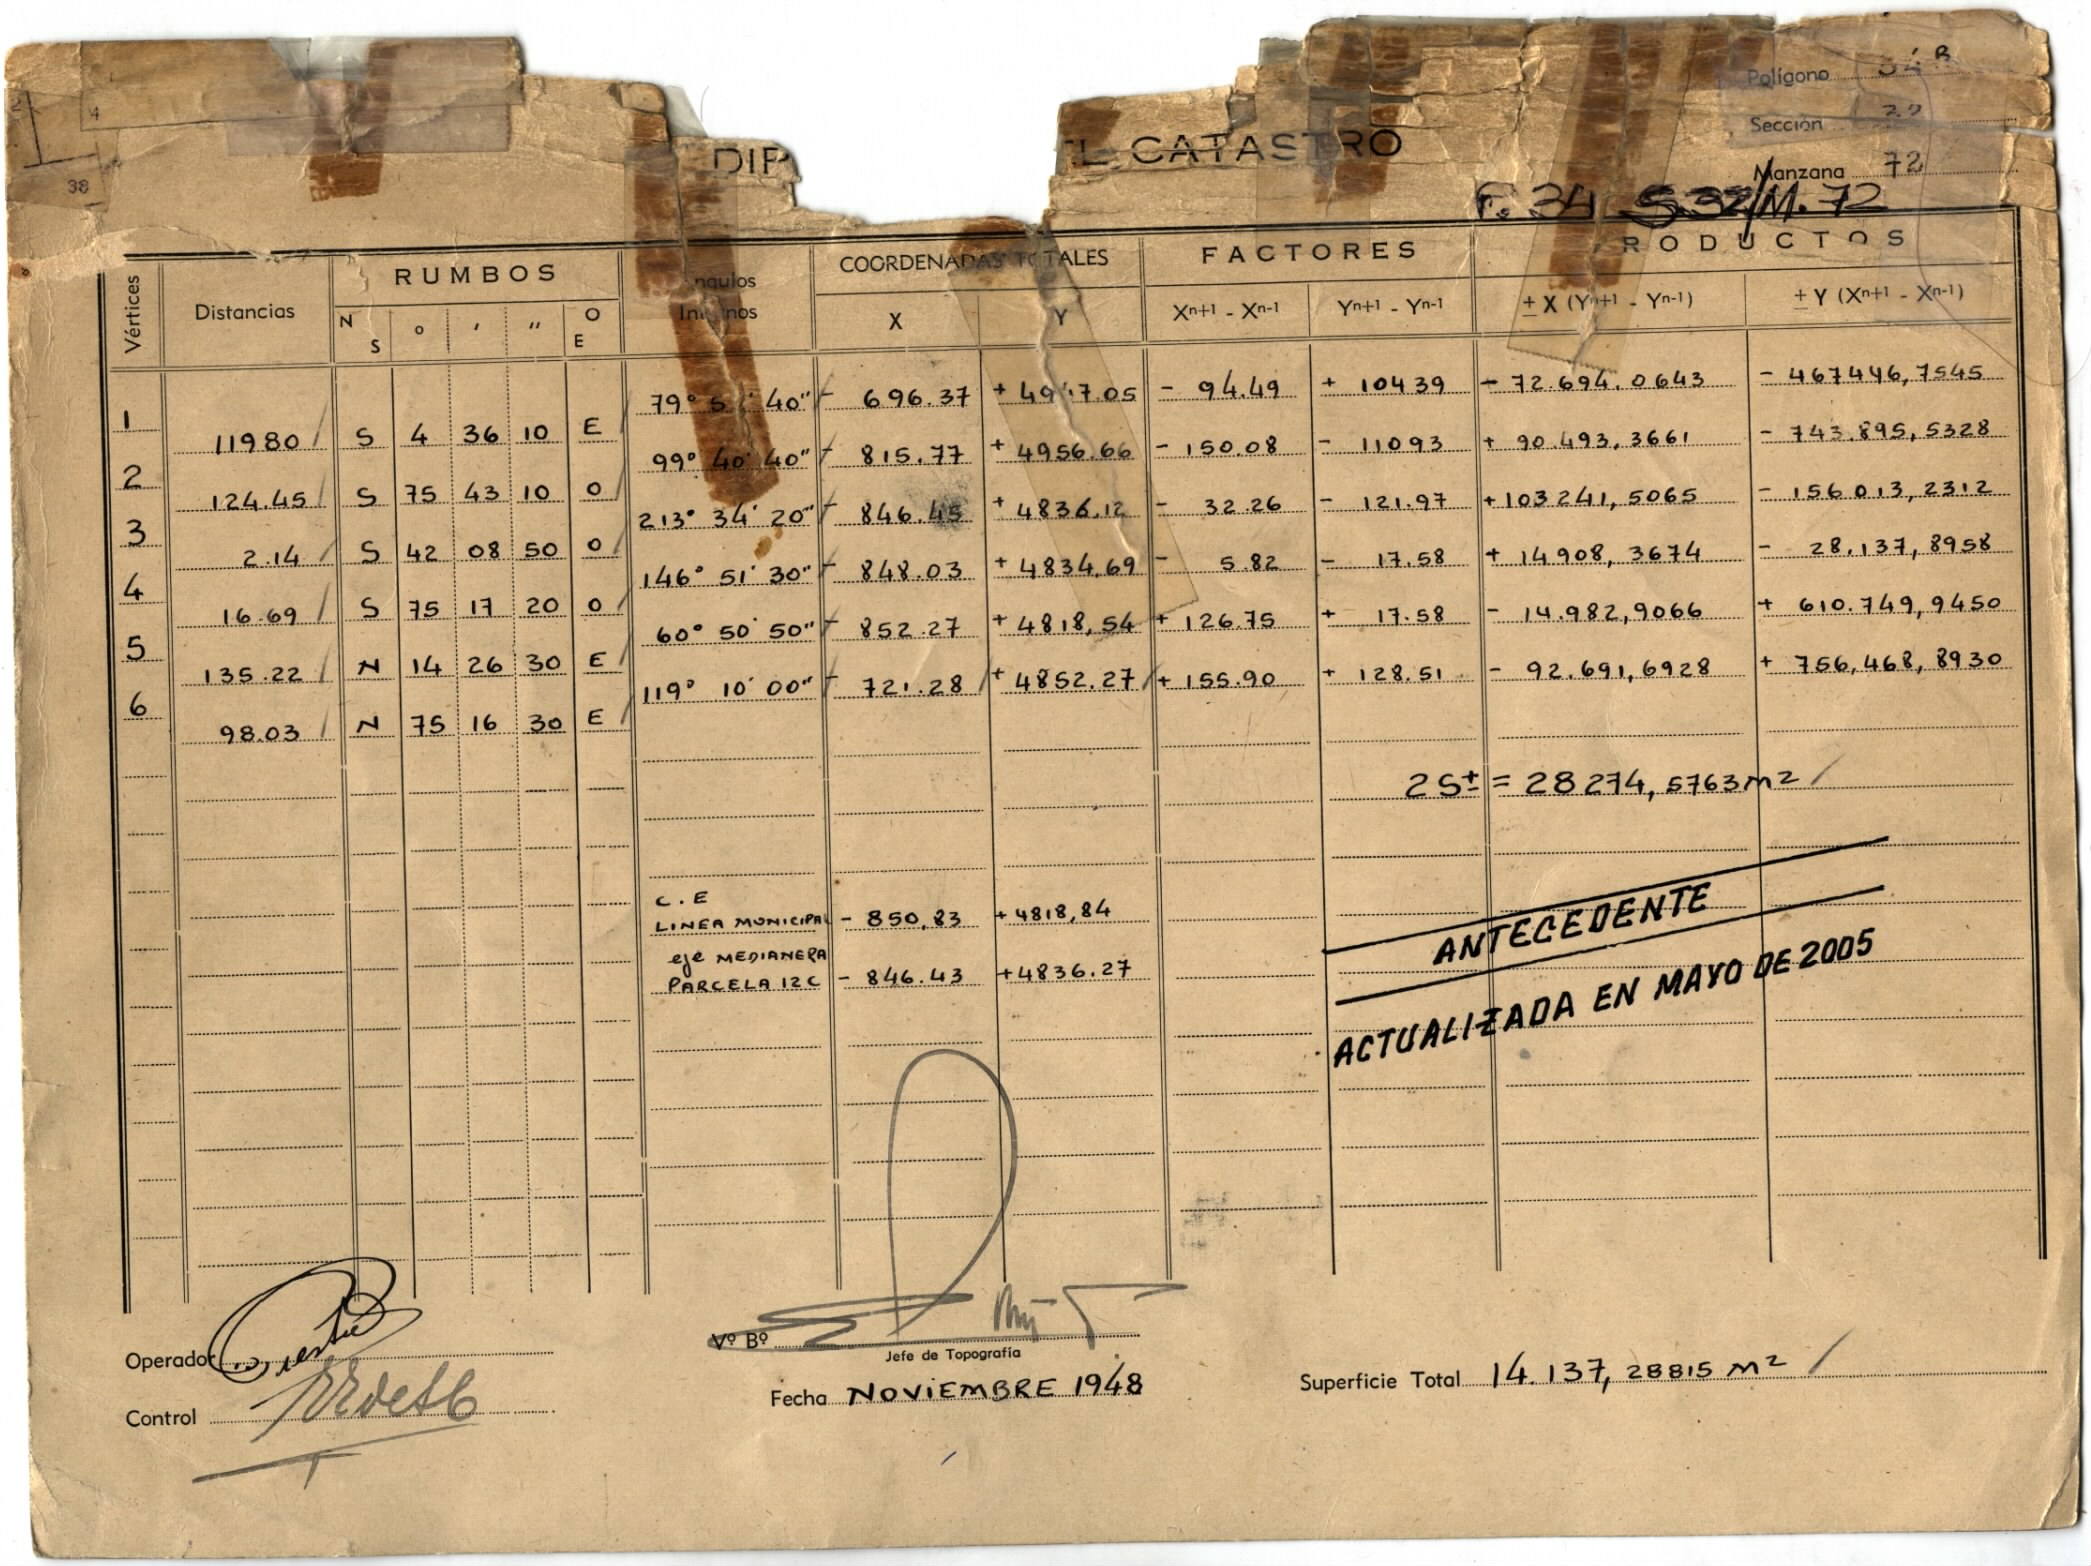 Polígono
Sección
DIR EL CATASTRO
Manzana 72
38
4
P. 34 S.32/M. 72
Vértices Distancias RUMBOS COORDENADAS TOTALES FACTORES PRODUCTOS
N S ° ' " O E X Y Xn+1 - Xn-1 Yn+1 - Yn-1 ± X (Yn+1 - Yn-1) ± Y (Xn+1 - Xn-1)
79° 40" - 696.37 - 94.49 + 10439 - 72.694.0643 - 467446,7545
1 119.80 S 4 36 10 E
99° 40' 40" - 815.77 + 4956.66 - 150.08 - 11093 + 90.493,3661 - 743.895,5328
2 124.45 S 75 43 10 O
213° 34' 20" - 846.45 + 4836.12 - 32.26 - 121.97 + 103241,5065 - 156.013,2312
3 2.14 S 42 08 50 O
146° 51' 30" - 848.03 + 4834,69 - 5.82 - 17.58 + 14.908,3674 - 28.137,8958
4 16.69 S 75 17 20 O
60° 50' 50" - 852.27 + 4818,54 + 126.75 + 17.58 - 14.982,9066 + 610.749,9450
5 135.22 N 14 26 30 E
119° 10' 00" - 721.28 + 4852.27 + 155.90 + 128.51 - 92.691,6928 + 756,468,8930
6 98.03 N 75 16 30 E
2S± = 28274,5763 m2
C.E
LINEA MUNICIPAL - 850,83 + 4818,84
eje MEDIANERA
PARCELA 12C - 846.43 + 4836.27
ANTECEDENTE
ACTUALIZADA EN MAYO DE 2005
Operador
Vº Bº
Jefe de Topografía
Control
Fecha NOVIEMBRE 1948
Superficie Total 14.137,28815 m2